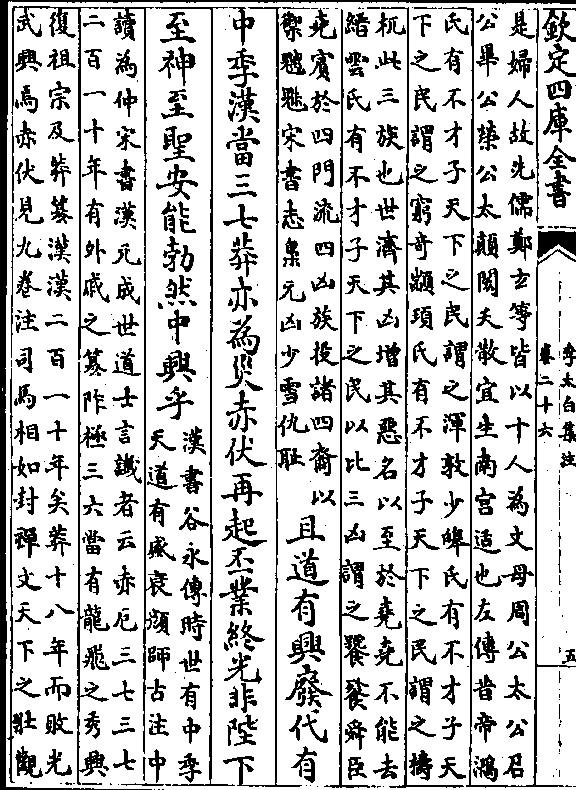 欽定四庫全書
李太白集注
卷二十六
五
是婦人故先儒鄭玄等皆以十人為文母周公太公召
公畢公榮公太顛閎夭散宜生南宮适也左傳昔帝鴻
氏有不才子天下之民謂之渾敦少皥氏有不才子天
下之民謂之窮奇顓頊氏有不才子天下之民謂之檮
杌此三族也世濟其凶增其惡名以至於堯堯不能去
縉雲氏有不才子天下之民以比三凶謂之饕餮舜臣
堯賓於四門流四凶族投諸四裔以
禦魑魅宋書志梟元凶少雪仇耻
且道有興廢代有
中季漢當三七莽亦為災赤伏再起丕業終光非陛下
至神至聖安能勃然中興乎
漢書谷永傳時世有中季
天道有盛衰顔師古注中
讀為仲宋書漢元成世道士言讖者云赤厄三七三七
二百一十年有外戚之篡祚極三六當有龍飛之秀興
復祖宗及莽篡漢漢二百一十年矣莽十八年而敗光
武興焉赤伏見九卷注司馬相如封禪文天下之壯觀